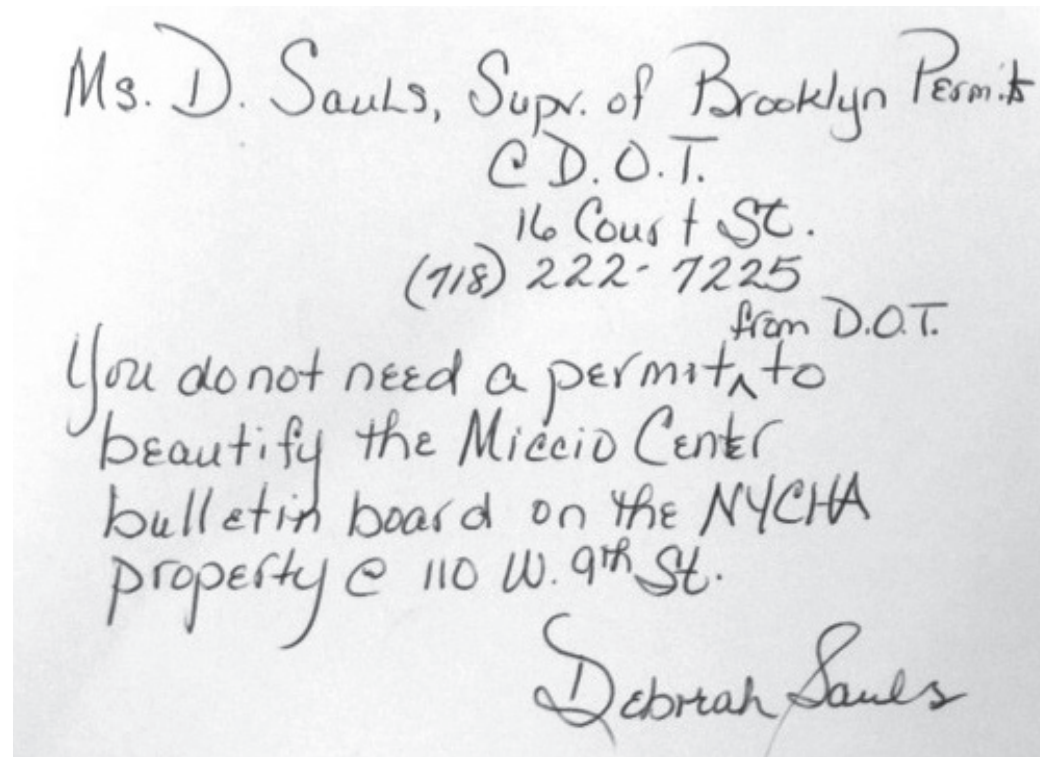 Ms. D. Sauls, Supr. of Brooklyn Permits
@ D.O.T.
16 Court St.
(718) 222-7225
from D.O.T.
You do not need a permit ^ to
beautify the Miccio Center
bulletin board on the NYCHA
property @ 110 W. 9th St.
Deborah Sauls